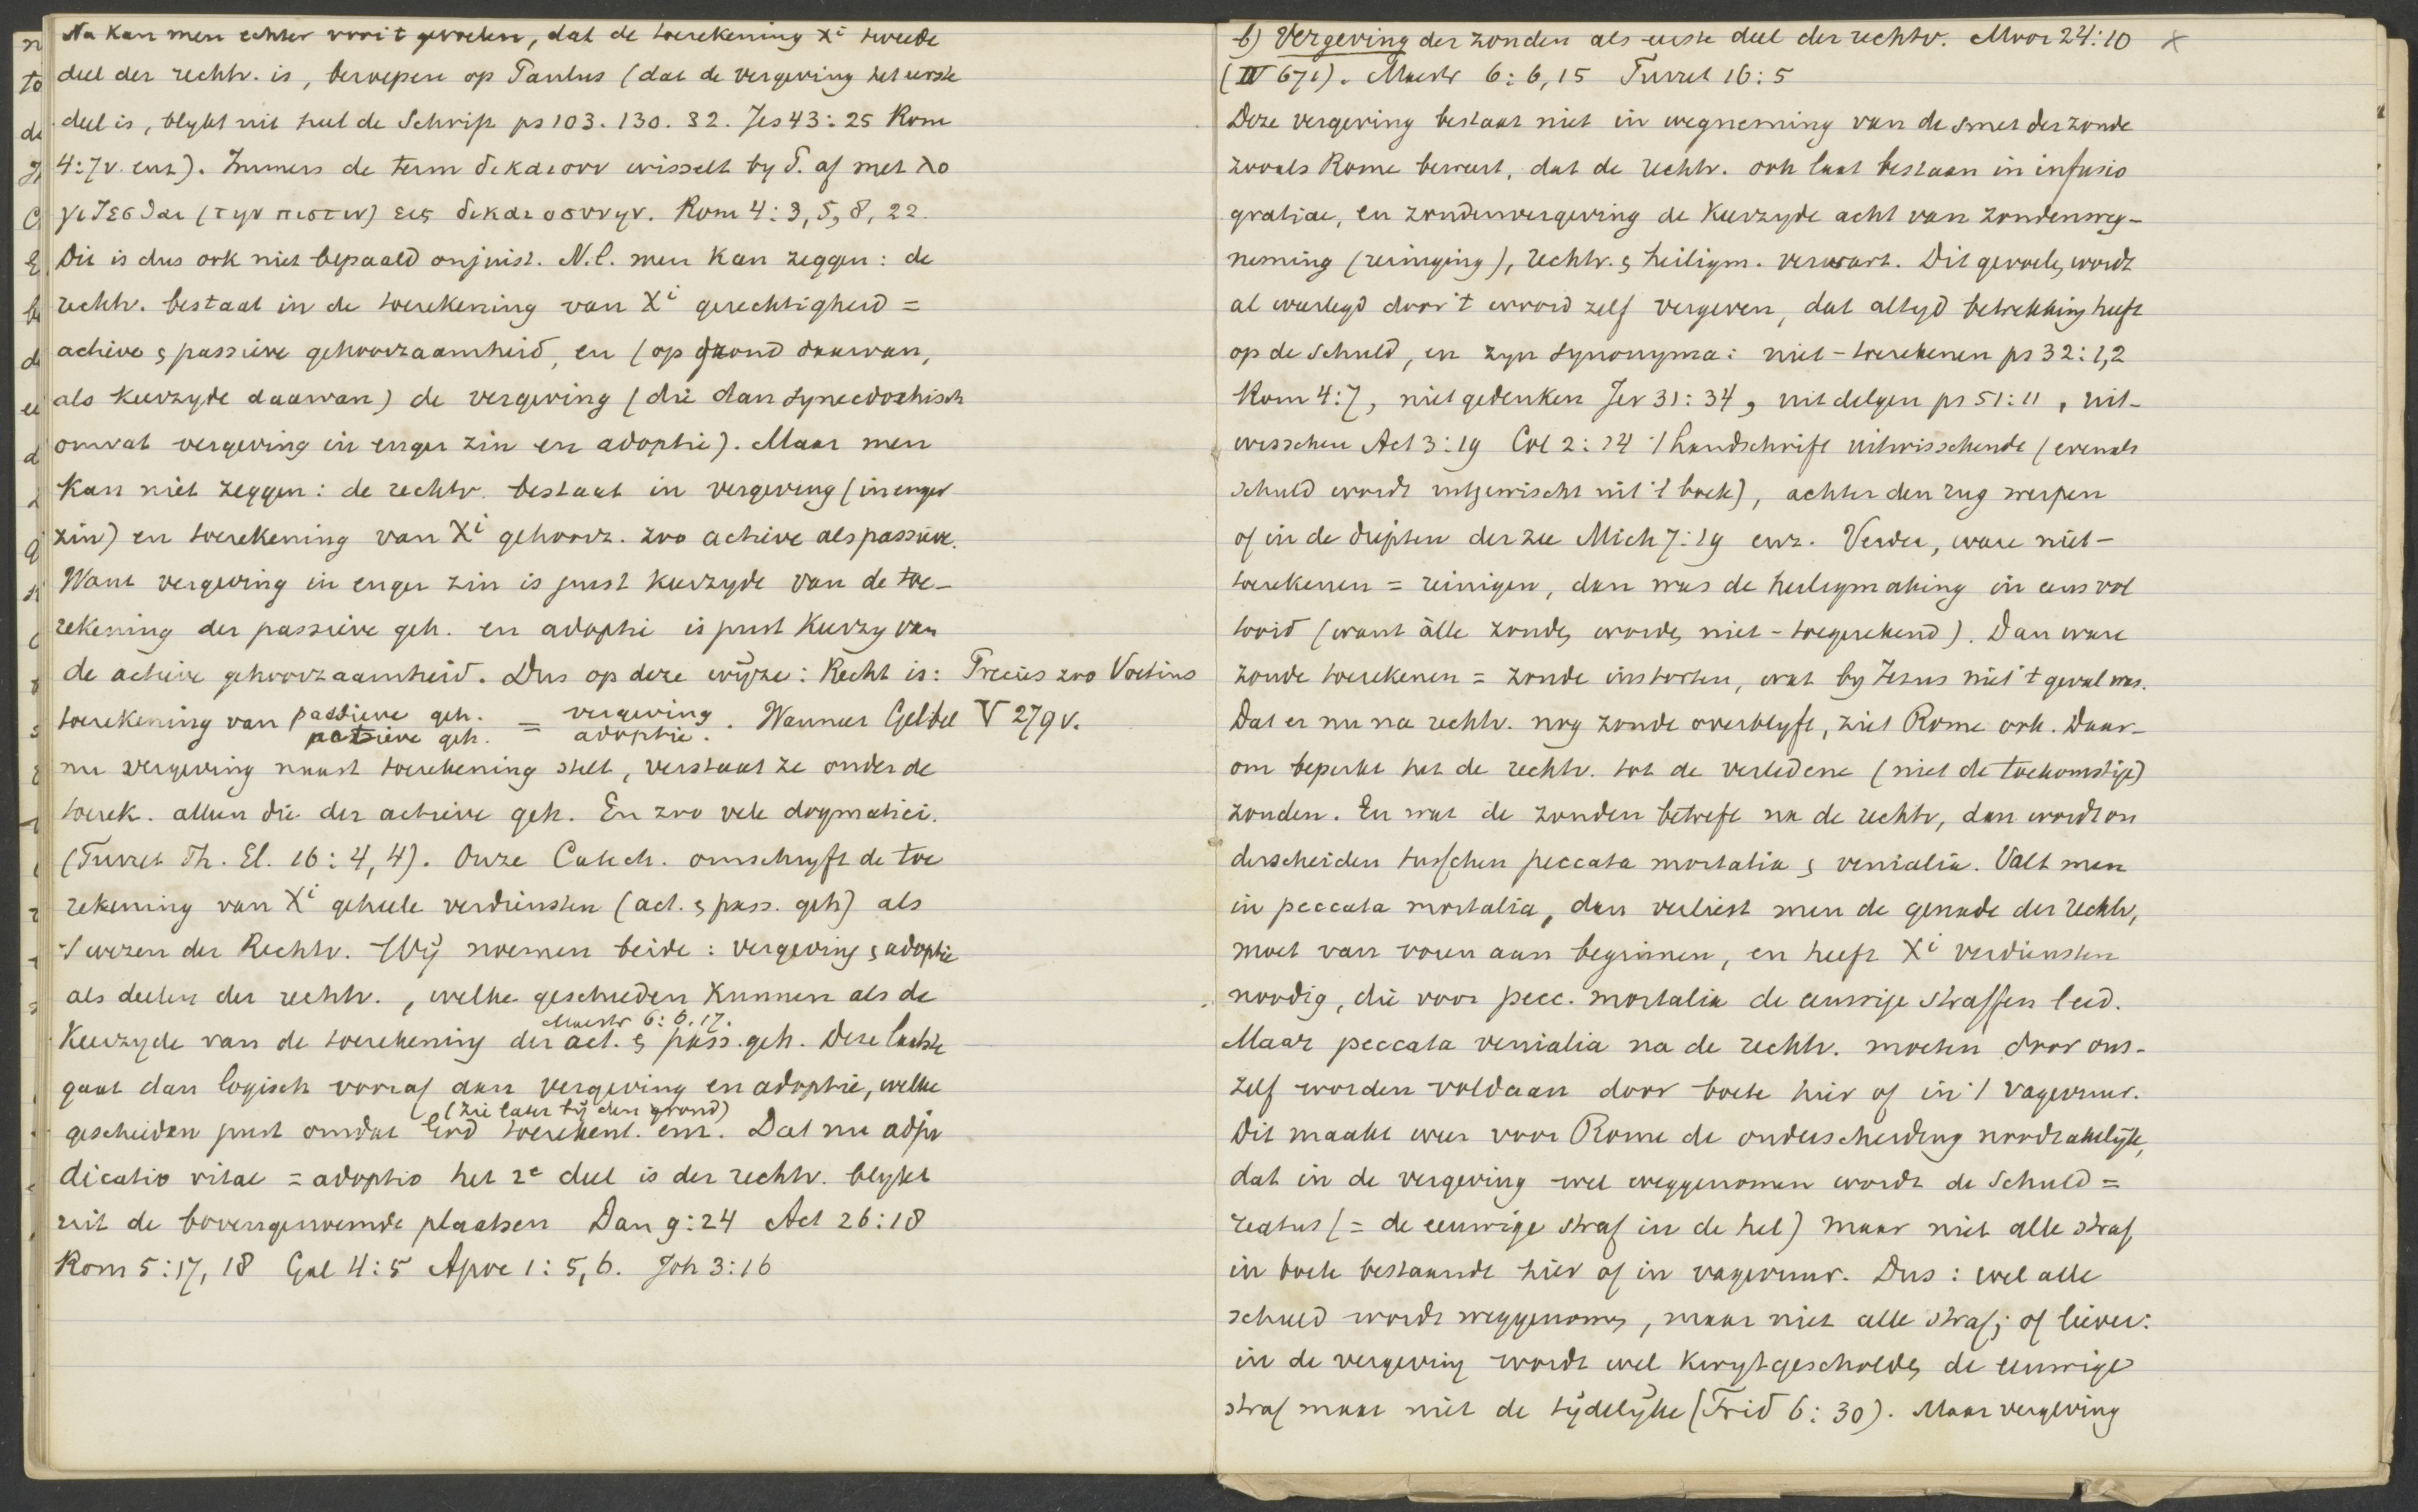 Nu kan men echter voor 't gevoelen, dat de toerekening Xi tweede
deel der rechtv. is, beroepen op Paulus (dat de vergeving het eerste
deel is, blykt uit heel de Schrift ps 103. 130. 32. Jes 43:25 Rom
4:7v. enz). Immers de term δικαιουν wisselt by P. af met λο
γιζεσθαι (την πιστιν) εις δικαιοσυνην. Rom 4:3, 5, 8, 22.
Dit is dus ook niet bepaald onjuist. N.l. men kan zeggen: de
rechtv. bestaat in de toerekening van Xi gerechtigheid =
actieve & passieve gehoorzaamheid, en (op grond daarvan,
als keerzyde daarvan) de vergeving (die dan synecdochisch
omvat vergeving in enger zin en adoptie). Maar men
kan niet zeggen: de rechtv. bestaat in vergeving (in enger
zin) en toerekening van Xi gehoorz. zoo actieve als passieve.
Want vergeving in enger zin is juist keerzyde van de toe-
rekening der passieve geh. en adoptie is juist keerzy van
de actieve gehoorzaamheid. Dus op deze wijze: Recht is: Precies zoo Voetius
toerekening van passieve geh. = vergeving. Wanneer Gelddel V 279v.
actieve geh. adoptie.
nu vergeving naast toerekening stelt, verstaat ze onder de
toerek. alleen die der actieve geh. En zoo vele dogmatici.
(Turret Th. El. 16:4, 4). Onze Catech. omschryft de toe
rekening van Xi geheele verdiensten (act. & pass. geh) als
't wezen der Rechtv. Wij noemen beide: vergeving & adoptie
als deelen der rechtv., welke geschieden kunnen als de
Maestr 6:6.17.
keerzyde van de toerekening der act. & pass. geh. Deze laatste
gaat dan logisch vooraf aan vergeving en adoptie, welke
(zie later bij den grond)
geschieden juist omdat God toerekent. enz. Dat nu adju
dicatio vitae = adoptio het 2e deel is der rechtv. blykt
uit de bovengenoemde plaatsen Dan 9:24 Act 26:18
Rom 5:17, 18 Gal 4:5 Apoc 1:5,6. Joh 3:16
b) Vergeving der zonden als eerste deel der rechtv. Moor 24:10 x
(IV 671). Maestr 6:6,15 Turret 16:5
Deze vergeving bestaat niet in wegneming van de smet der zonde
zooals Rome beweert, dat de rechtv. ook laat bestaan in infusio
gratiae, en zondenvergeving de keerzyde acht van zondenweg-
neming (reiniging), rechtv. & heiligm. verwart. Dit gevoelen wordt
al weerlegd door 't woord zelf vergeven, dat altyd betrekking heeft
op de schuld, en zyn synonyma: niet-toerekenen ps 32:1,2
Rom 4:7, niet gedenken Jer 31:34, uit delgen ps 51:11, uit-
wisschen Act 3:19 Col 2:14 't handschrift uitwisschende (evenals
schuld wordt uitgewischt uit 't boek), achter den rug werpen
of in de diepten der zee Mich 7:19 enz. Verder, ware niet-
toerekenen = reinigen, dan was de heiligmaking in eens vol
tooid (want álle zonden worden niet-toegerekend). Dan ware
zonde toerekenen = zonde instorten, wat by Jezus niet 't geval was.
Dat er nu na rechtv. nog zonde overblyft, ziet Rome ook. Daar-
om beperkt het de rechtv. tot de verledene (niet de toekomstige)
zonden. En wat de zonden betreft na de rechtv, dan wordt on
derscheiden tusschen peccata mortalia & venialia. Valt men
in peccata mortalia, dan verliest men de genade der rechtv,
moet van voren aan beginnen, en heeft Xi verdiensten
noodig, die voor pecc. mortalia de eeuwige straffen leed.
Maar peccata venialia na de rechtv. moeten door ons-
zelf worden voldaan door boete hier of in 't vagevuur.
Dit maakt weer voor Rome de onderscheiding noodzakelijk,
dat in de vergeving wel weggenomen wordt de schuld =
reatus (= de eeuwige straf in de hel) maar niet alle straf
in boete bestaande hier of in vagevuur. Dus: wel alle
schuld wordt weggenomen, maar niet alle straf; of liever:
in de vergeving wordt wel kwytgescholden de eeuwige
straf maar niet de tijdelyke (Trid 6:30). Maar vergeving